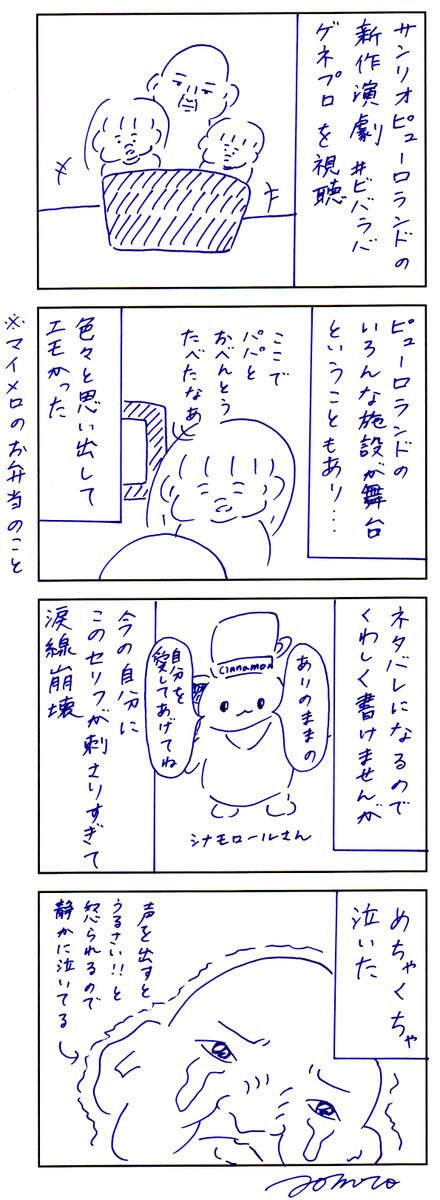 サンリオピューロランドの
新作演劇 #ビバラバ
ゲネプロを視聴
ピューロランドの
いろんな施設が舞台
ということもあり…
ここで
パパと
おべんとう
たべたなあ
色々と思い出して
エモかった
※マイメロのお弁当のこと
ネタバレになるので
くわしく書けませんが
ありのままの
自分を
愛してあげてね
Cinnamon
シナモロールさん
今の自分に
このセリフが刺さりすぎて
涙線崩壊
めちゃくちゃ
泣いた
声を出すと
うるさい!!と
怒られるので
静かに泣いてる